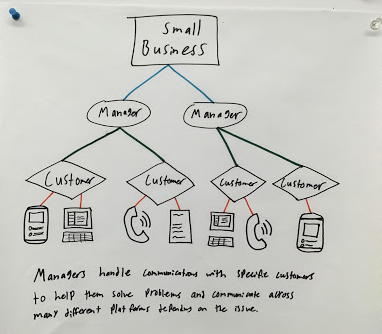 Small
Business
Manager
Manager
Customer
Customer
Customer
Customer
Managers handle communications with specific customers
to help them solve problems and communicate across
many different platforms depending on the issue.